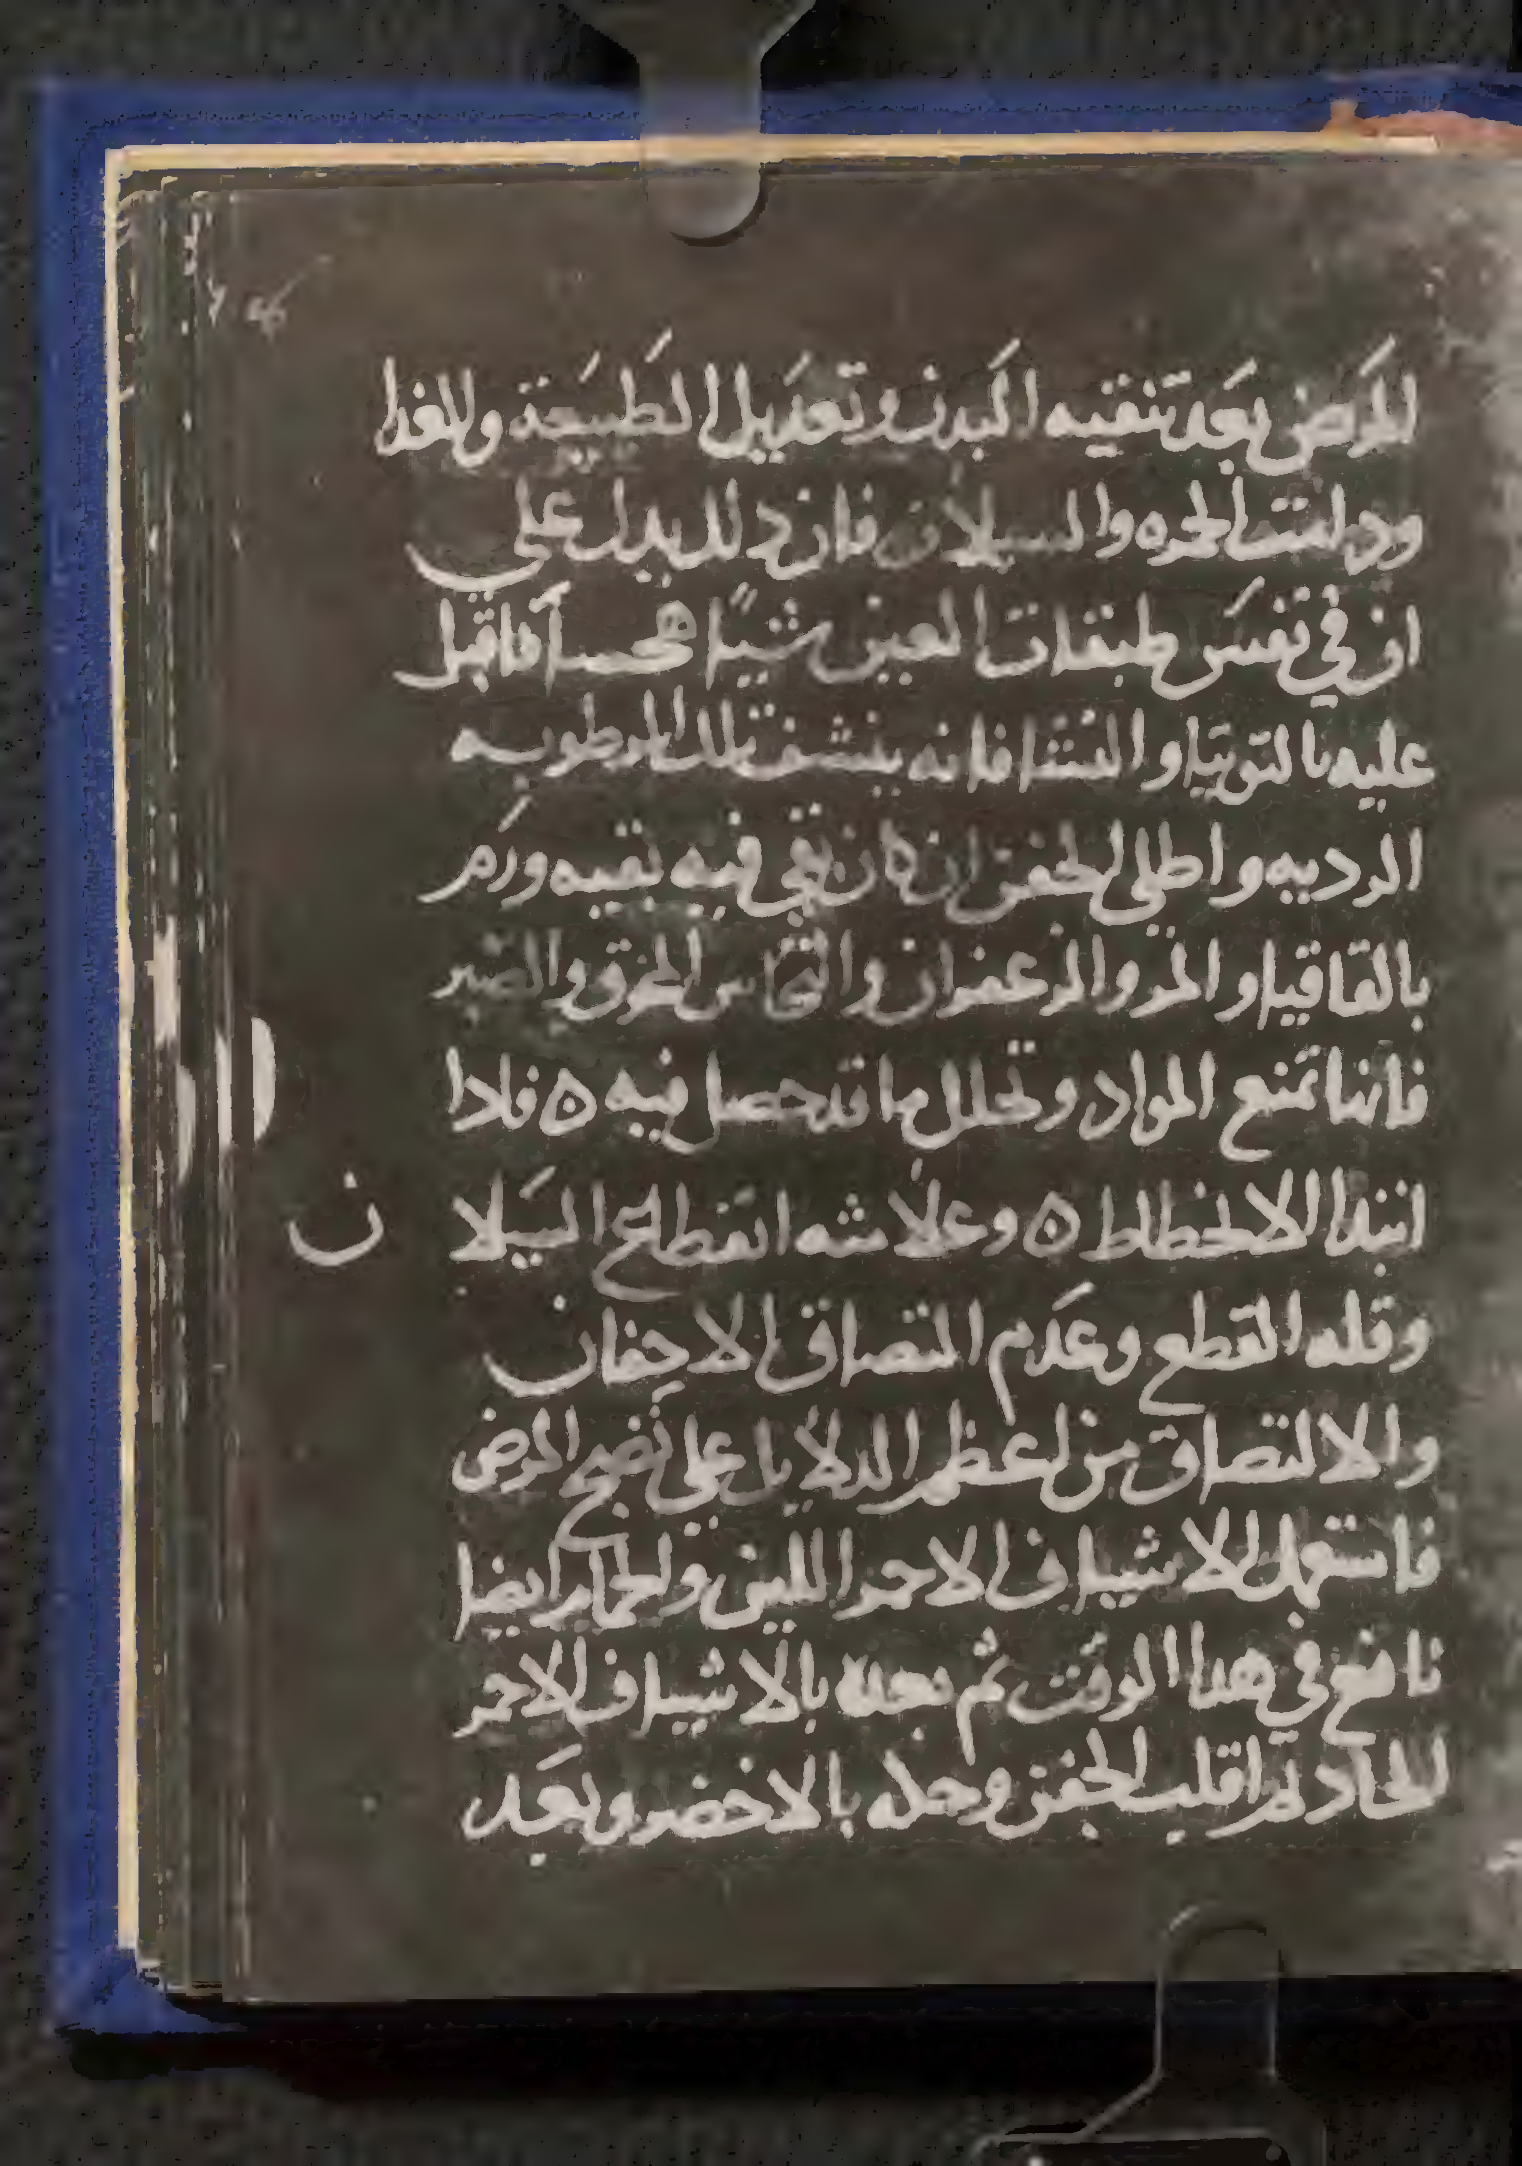 المرض بعد تنقيه البدن وتعديل الطبيعة والغدا
ودامت الحمره والسيلان فان دلك يدل على
ان في نفس طبقات العين شيا محسا فاقبل
عليه بالتوتيا والنشا فانه ينشف تلك الرطوبه
الرديه واطلي الجفن ان كان بقي فيه بقيه ورم
بالقاقيا والمر والزعفران والنحاس المحرق والصبر
فانها تمنع المواد وتحلل ما قد حصل فيه ه فادا
ابتدا الانحطاط ه وعلامته انقطاع السيلا
ن
وقله القطع وعدم التصاق الاجفان
والالتصاق من اعظم الدلايل على نضج المرض
فاستعمل الاشياف الاحمر اللين والحمام ايضا
نافع في هدا الوقت ثم بعده بالاشياف الاحمر
الحاد ثم اقلب الجفن وحكه بالاخضر وبعد